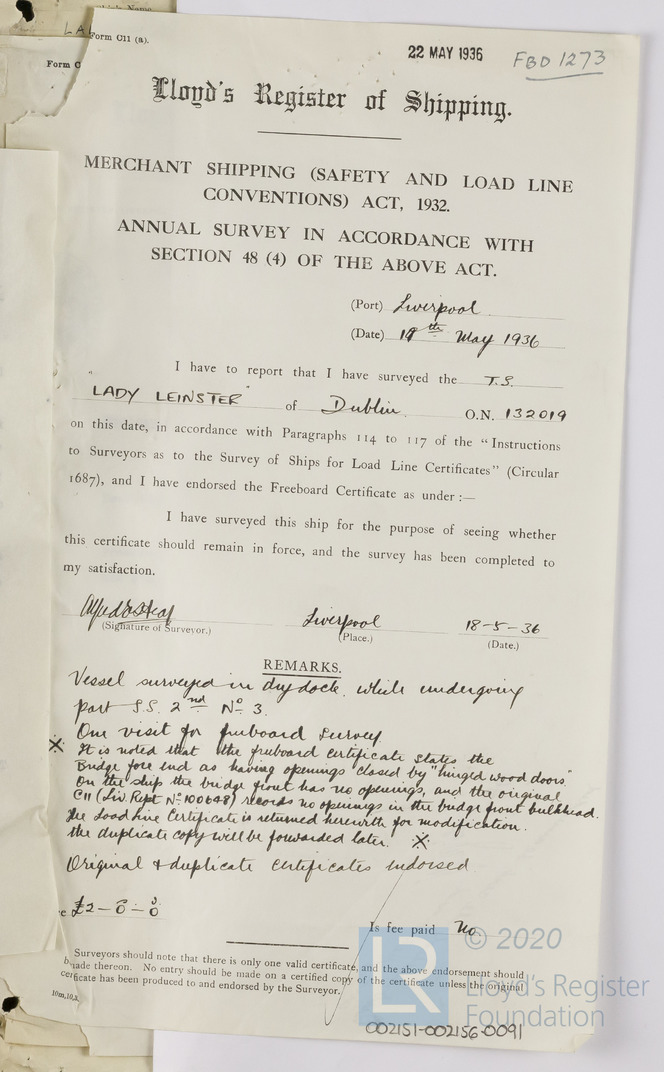 LA
Form C11 (a).
Form C
22 MAY 1936
FBD 1273
Lloyd's Register of Shipping.
MERCHANT SHIPPING (SAFETY AND LOAD LINE
CONVENTIONS) ACT, 1932.
ANNUAL SURVEY IN ACCORDANCE WITH
SECTION 48 (4) OF THE ABOVE ACT.
(Port) Liverpool
(Date) 18th May 1936
I have to report that I have surveyed the T.S.
"LADY LEINSTER" of Dublin. O.N. 132019
on this date, in accordance with Paragraphs 114 to 117 of the "Instructions
to Surveyors as to the Survey of Ships for Load Line Certificates" (Circular
1687), and I have endorsed the Freeboard Certificate as under :—
I have surveyed this ship for the purpose of seeing whether
this certificate should remain in force, and the survey has been completed to
my satisfaction.
Liverpool 18-5-36
(Signature of Surveyor.) (Place.) (Date.)
REMARKS.
Vessel surveyed in dry dock. while undergoing
part S.S. 2nd No 3.
One visit for freeboard survey
X It is noted that the freeboard certificate states the
Bridge fore end as having openings closed by "hinged wood doors"
On the ship the bridge front has no openings, and the original
C11 (Liv. Rept No 100648) records no openings in the bridge front bulkhead.
The Load Line Certificate is returned herewith for modification.
the duplicate copy will be forwarded later. X
Original & duplicate certificates indorsed
e £2-0-0
Is fee paid No.
Surveyors should note that there is only one valid certificate, and the above endorsement should
be made thereon. No entry should be made on a certified copy of the certificate unless the original
certificate has been produced to and endorsed by the Surveyor.
10m,10,3
LR
© 2020
Lloyd's Register
Foundation
002151-002156-0091